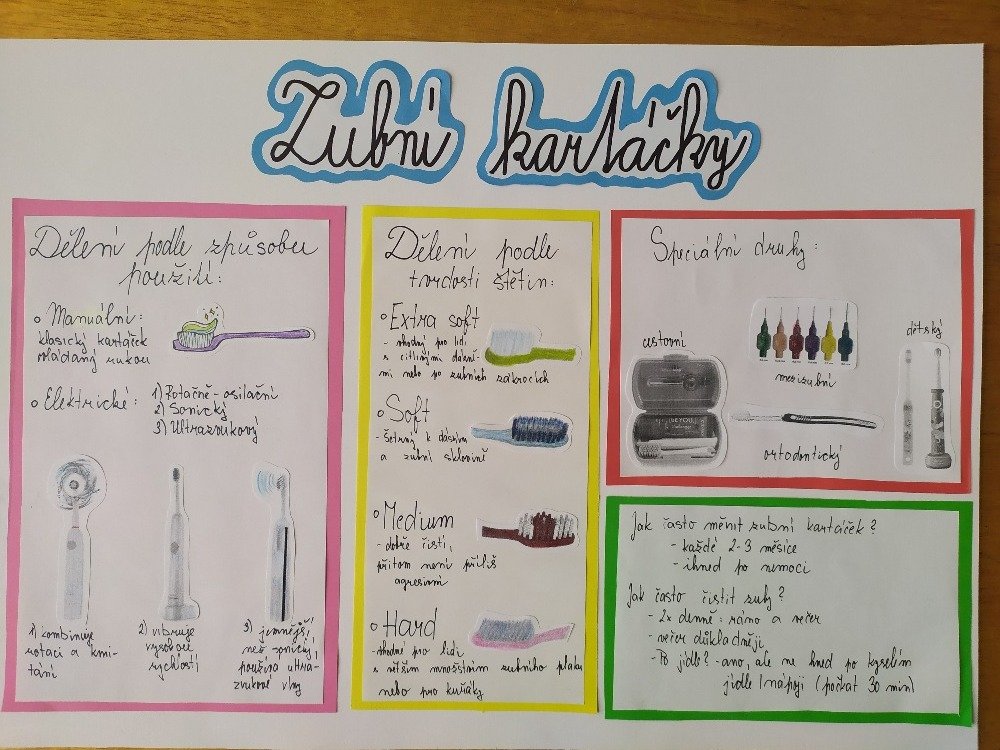 Zubní kartáčky
Dělení podle způsobu
použití:
Manuální:
klasický kartáček
ovládaný rukou
Elektrické:
1) Rotačně-osilační
2) Sonický
3) Ultrazvukový
1) kombinuje
rotaci a kmi-
tání
2) vibruje
vysokou
rychlostí
3) jemnější
než sonický,
používá ultra-
zvukové vlny
Dělení podle
tvrdosti štětin:
Extra soft
- vhodný pro lidi
s citlivými dásně-
mi nebo po zubních zákrocích
Soft
- šetrný k dásním
a zubní sklovině
Medium
- dobře čistí,
přitom není příliš
agresivní
Hard
- vhodné pro lidi
s větším množstvím zubního plaku
nebo pro kuřáky
Speciální druhy:
cestovní
mezizubní
dětský
ortodontický
Jak často měnit zubní kartáček?
- každé 2-3 měsíce
- ihned po nemoci
Jak často čistit zuby?
- 2x denně: ráno a večer
- večer důkladněji
- Po jídle? - ano, ale ne hned po kyselém
jídle/nápoji (počkat 30 min)